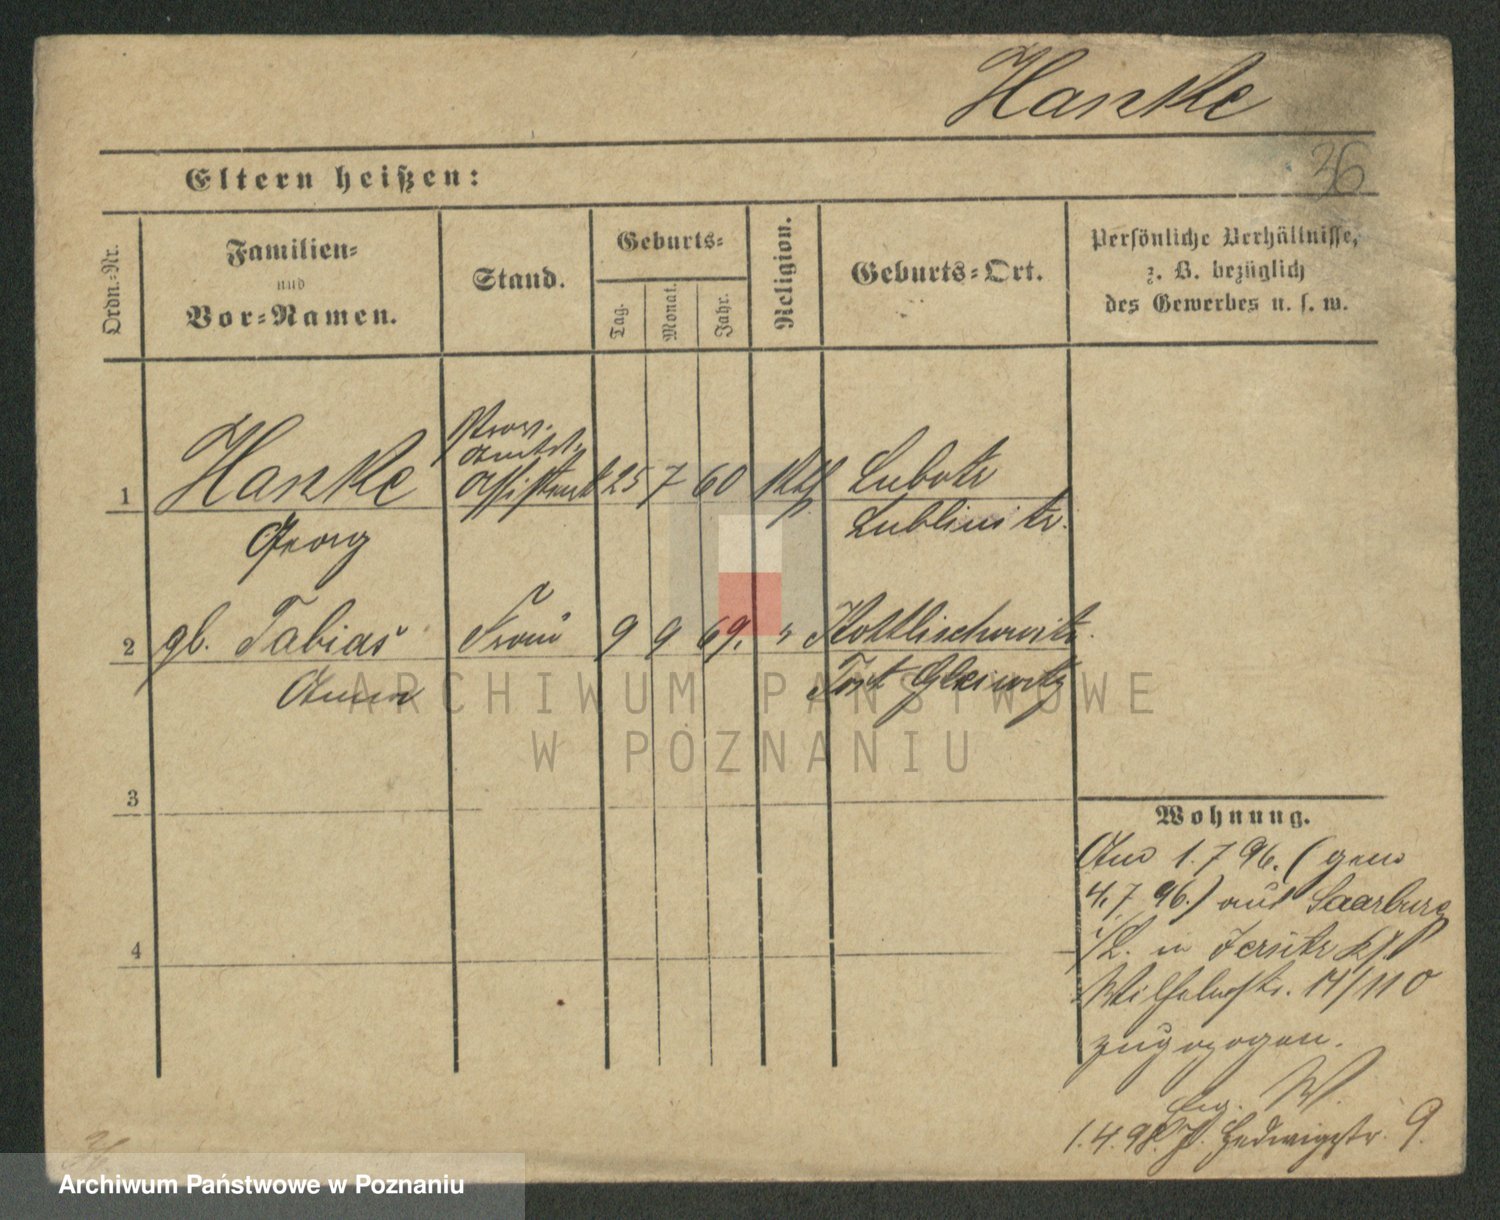 Hanke
36
Eltern heißen:
Ordn.-Nr.
Familien-
und
Vor-Namen.
Stand.
Geburts-
Tag.
Monat.
Jahr.
Religion.
Geburts-Ort.
Persönliche Verhältnisse,
z. B. bezüglich
des Gewerbes u. s. w.
Prov.
Amts-
1 Hanke Assistent 25 7 60 kth Lubotz
Georg Lublinitz.
2 gb. Tabias Frau 9 9 69. " Kottlischowitz
Anna Tost Gleiwitz
ARCHIWUM PAŃSTWOWE
W POZNANIU
3
4
Wohnung.
Am 1.7 96. (gem
4.7 96.) aus Saarburg
i/L. in Jersitz
Wilhelmstr.
zugezogen.
W.
1.4.98. J. Hedwigstr. 9.
Archiwum Państwowe w Poznaniu